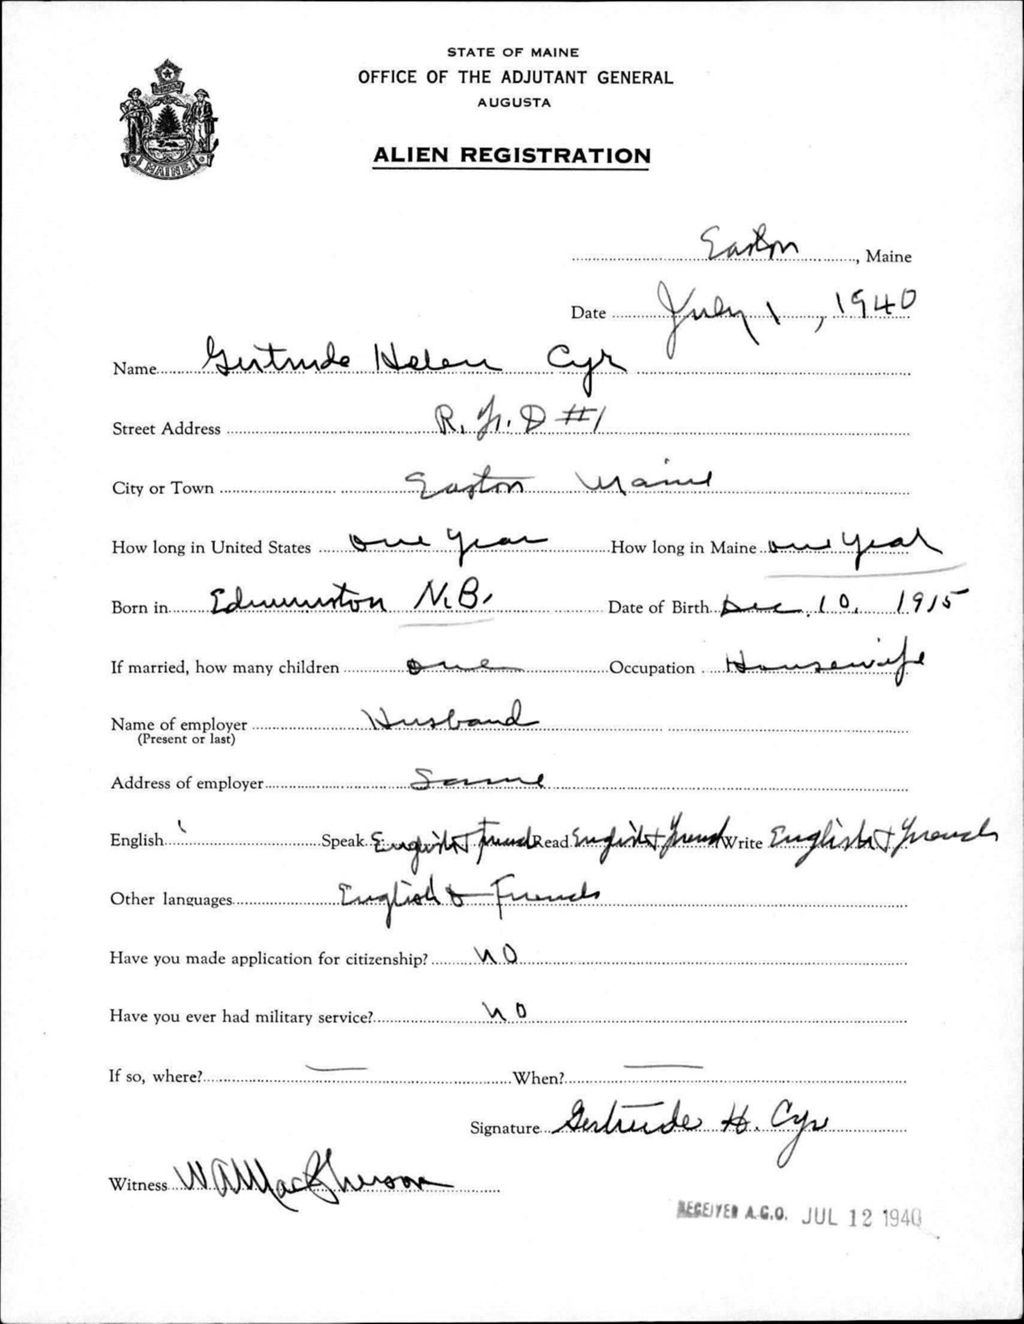 STATE OF MAINE
OFFICE OF THE ADJUTANT GENERAL
AUGUSTA
ALIEN REGISTRATION
MAINE
Easton, Maine
Date July 1, 1940
Name Gertrude Helen Cyr
Street Address R.F.D #1
City or Town Easton Maine
How long in United States one year How long in Maine one year
Born in Edmunston N.B. Date of Birth Dec 10, 1915
If married, how many children one Occupation Housewife
Name of employer Husband
(Present or last)
Address of employer Same
English Speak English + French Read English + French Write English + French
Other languages English & French
Have you made application for citizenship? NO
Have you ever had military service? NO
If so, where? — When? —
Signature Gertrude H. Cyr
Witness W A MacPherson
RECEIVED A.G.O. JUL 12 1940